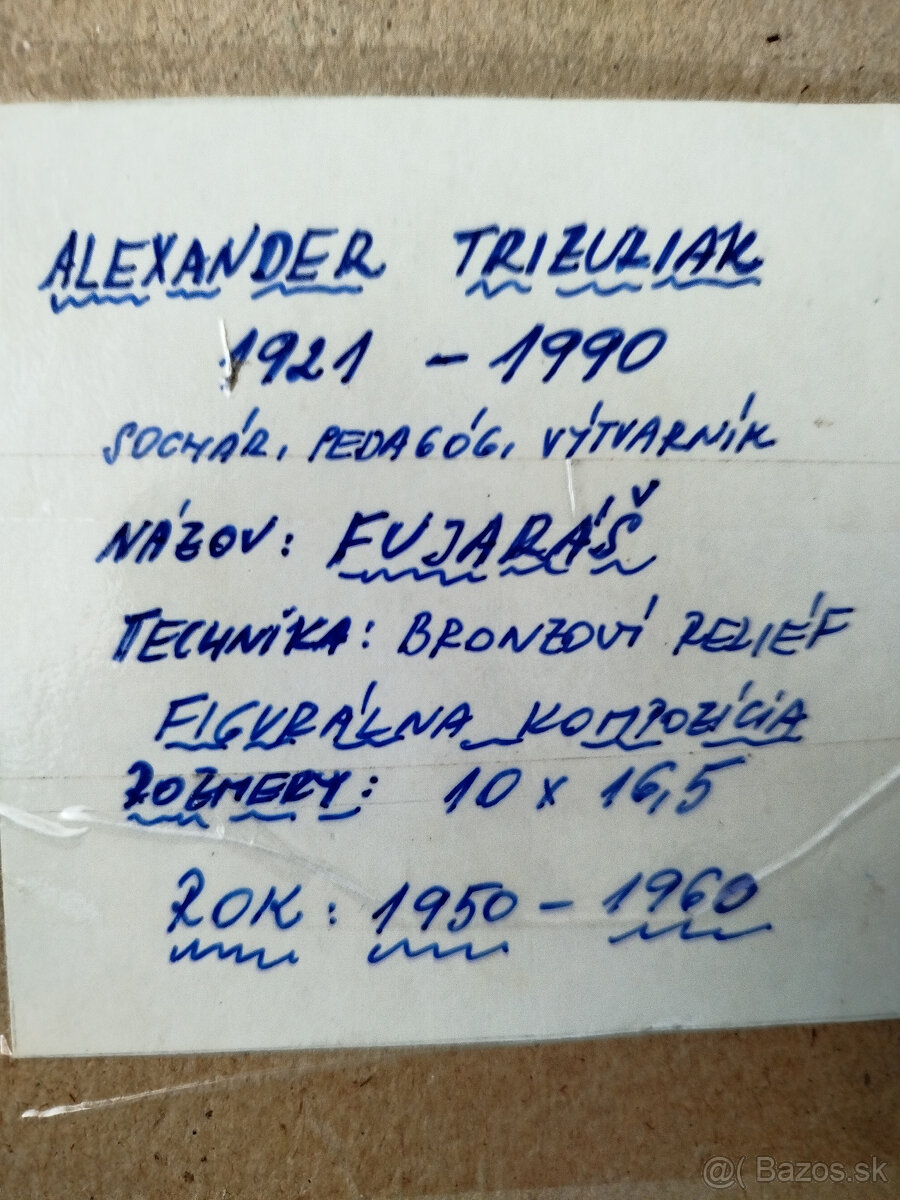 ALEXANDER TRIZULIAK
1921 - 1990
SOCHÁR, PEDAGÓG, VÝTVARNÍK
NÁZOV: FUJARÁŠ
TECHNIKA: BRONZOVÍ RELIÉF
FIGURÁLNA KOMPOZÍCIA
ROZMERY: 10 x 16,5
ROK: 1950 - 1960
@( Bazos.sk